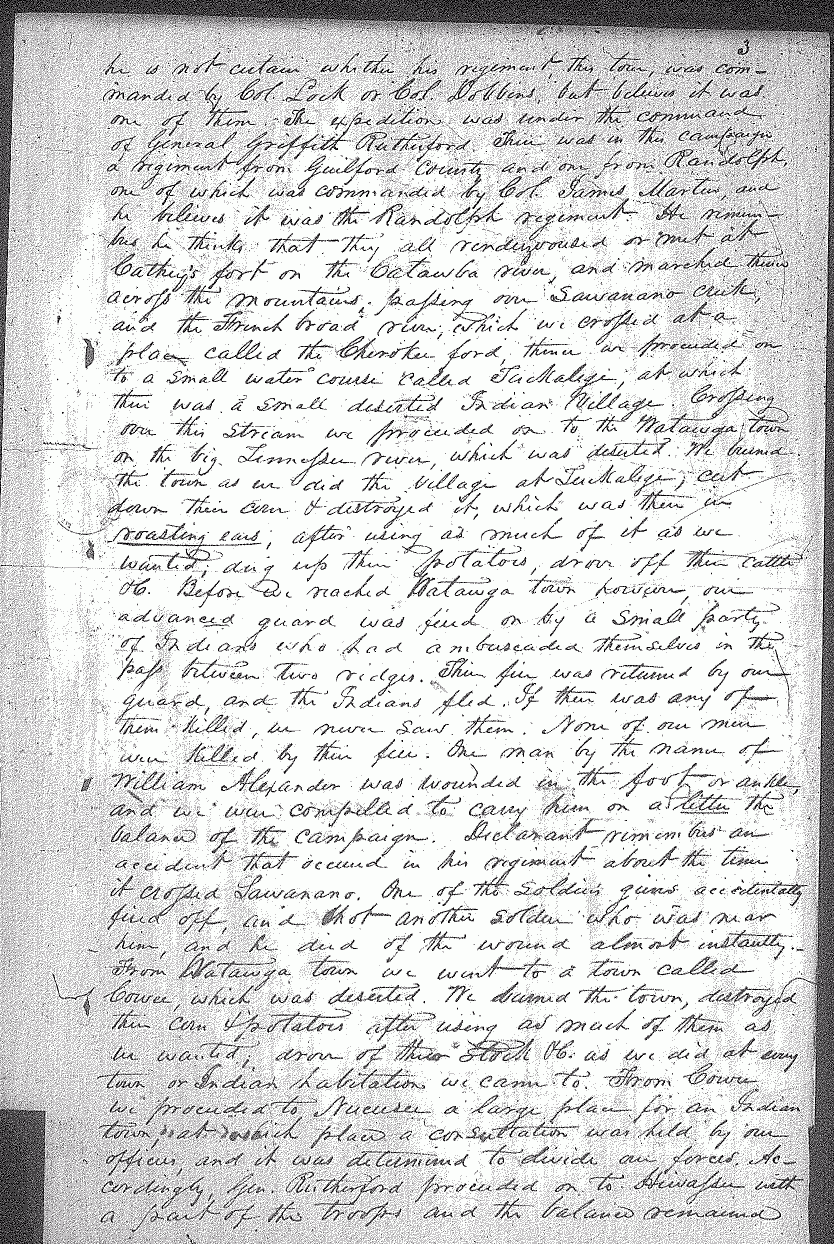 3
he is not certain whether his regiment, this tour, was com-
manded by Col. Lock or Col. Dobbins, but believes it was
one of them. The expedition was under the command
of General Griffith Rutherford. There was in this campaign
a regiment from Guilford County and one from Randolph,
one of which was commanded by Col. James Martin, and
he believes it was the Randolph regiment. He remem-
bers he thinks that they all rendezvoused or met at
Cathey's fort on the Catawba river, and marched thence
across the mountains, passing over Sawanano creek,
and the French broad river, which we crossed at a
place called the Cherokee ford, thence we proceeded on
to a small water course called Tuckalege, at which
there was a small deserted Indian Village. Crossing
over this stream we proceeded on to the Watauga town
on the big Tennessee river, which was deserted. We burned
the town as we did the village at Tuckalege; cut
down their corn & destroyed it, which was then in
roasting ears, after using as much of it as we
wanted; dug up their potatoes, drove off their cattle
&c. Before we reached Watauga town however, our
advanced guard was fired on by a small party
of Indians who had ambuscaded themselves in the
pass between two ridges. Their fire was returned by our
guard, and the Indians fled. If there was any of
them killed, we never saw them. None of our men
were killed by their fire. One man by the name of
William Alexander was wounded in the foot or ankle,
and we were compelled to carry him on a litter the
balance of the campaign. Declarant remembers an
accident that occured in his regiment about the time
it crossed Sawanano. One of the soldiers guns accidentally
fired off, and shot another soldier who was near
him, and he died of the wound almost instantly.
From Watauga town we went to a town called
Cowee, which was deserted. We burned the town, destroyed
their corn & potatoes after using as much of them as
we wanted; drove of their stock &c. as we did at every
town or Indian habitation we came to. From Cowee
we proceeded to Nucusee a large place for an Indian
town, at which place a consultation was held by our
officers, and it was determined to divide our forces. Ac-
cordingly, Gen. Rutherford proceeded on to Hiwassee with
a part of the troops and the balance remained